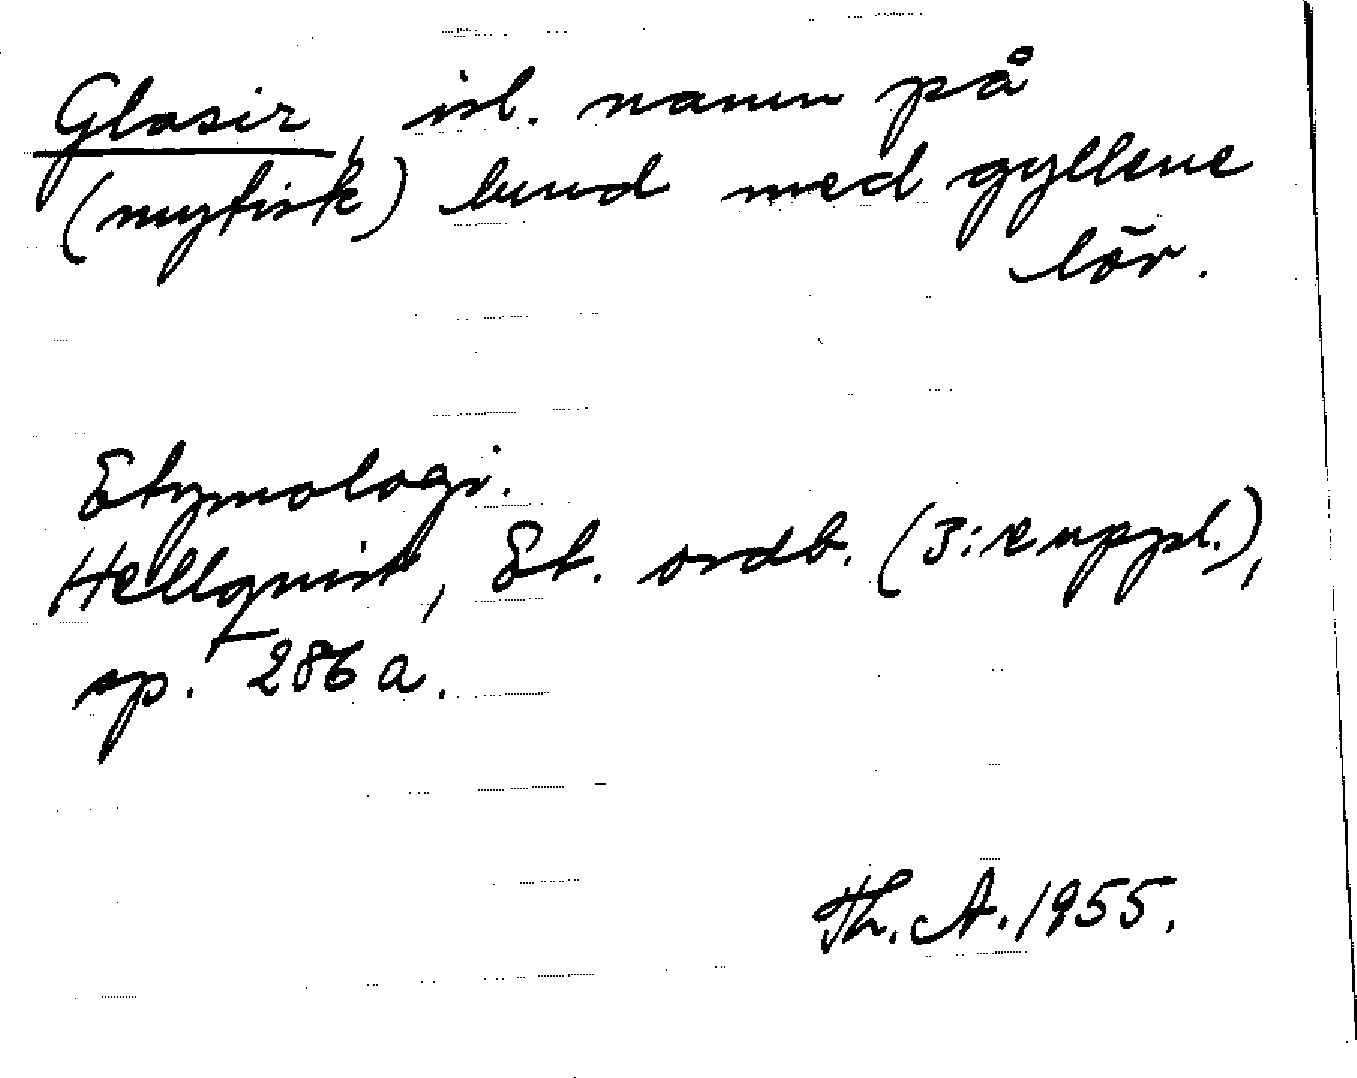 Glasir, isl. namn på
(mytisk) lund med gyllene
löv.
Etymologi.
Hellquist, Et. ordb. (3:e uppl.),
sp. 286 a.
Th. A. 1955.